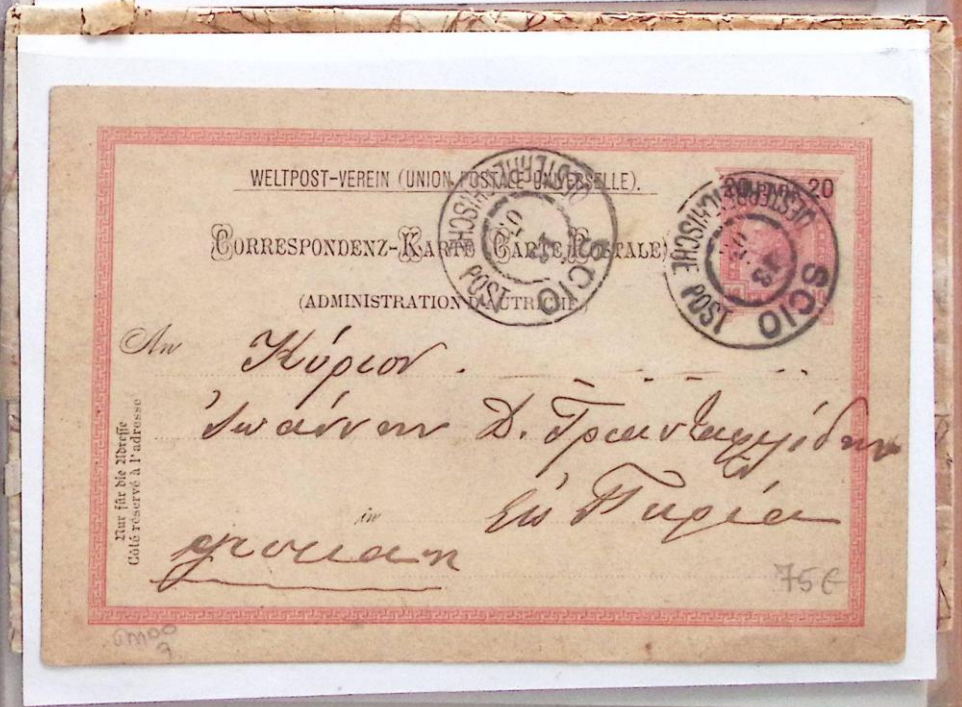 WELTPOST-VEREIN (UNION POSTALE UNIVERSELLE).
20 20
CORRESPONDENZ-KARTE (CARTE POSTALE)
(ADMINISTRATION D'AUTRICHE)
OESTERREICHISCHE POST
SCIO
13
OESTERREICHISCHE POST
SCIO
13
An Κύριον
Ἰωάννην Δ. Τριανταφυλλίδην
in
Nur für die Adresse
Côté réservé à l'adresse
75€